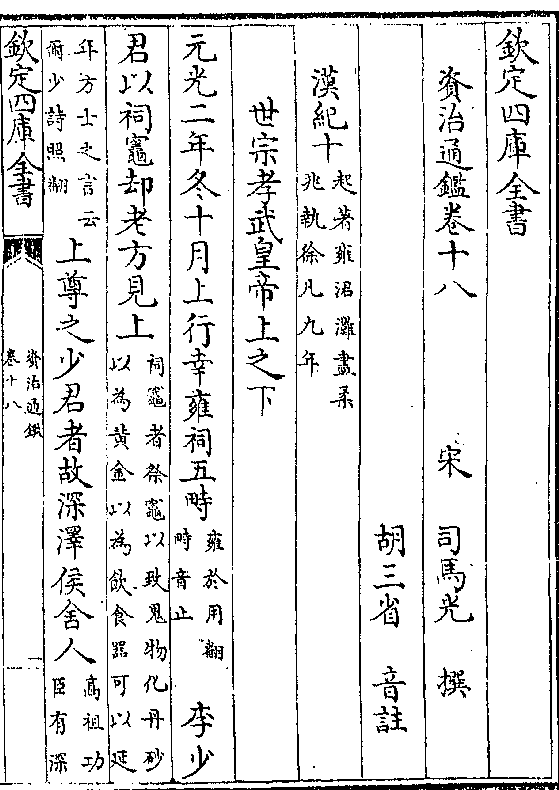 欽定四庫全書
資治通鑑卷十八
宋 司馬光 撰
胡三省 音註
漢紀十起著雍涒灘盡柔兆執徐凡九年
世宗孝武皇帝上之下
元光二年冬十月上行幸雍祠五畤雍於用翻畤音止 李少
君以祠竈却老方見上祠竈者祭竈以致鬼物化丹砂以為黄金以為飲食器可以延
年方士之言云爾少詩照翻上尊之少君者故深澤侯舍人高祖功臣有深
欽定四庫全書
資治通鑑
卷十八
一